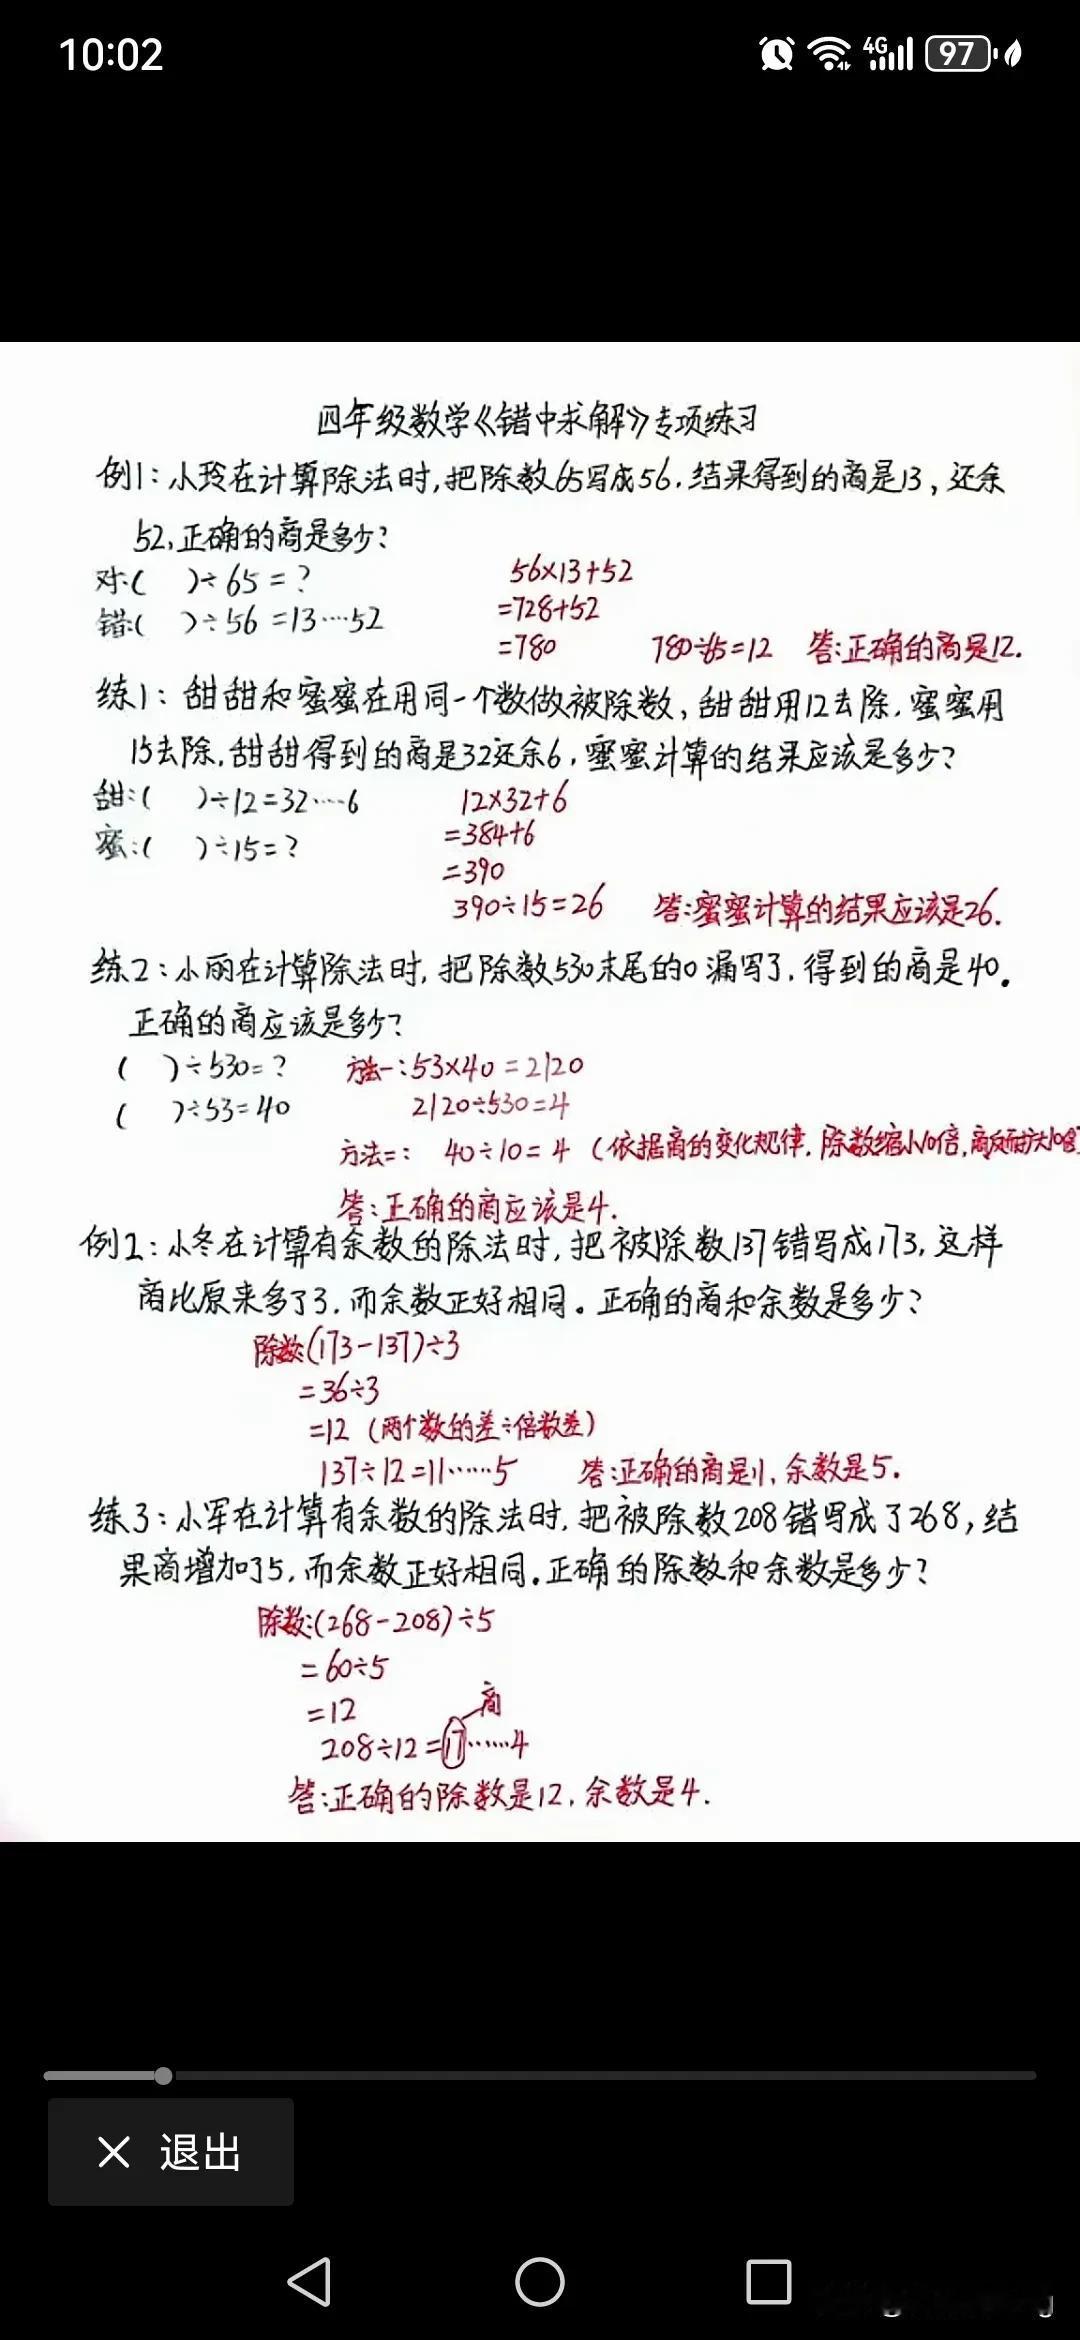 10:02
4G 97
四年级数学《错中求解》专项练习
例1：小玲在计算除法时,把除数65写成56.结果得到的商是13，还余
52,正确的商是多少？
对:(　)÷65=？
56×13+52
错:(　)÷56=13……52
=728+52
=780　780÷65=12　答:正确的商是12.
练1：甜甜和蜜蜜在用同一个数做被除数，甜甜用12去除.蜜蜜用
15去除,甜甜得到的商是32还余6，蜜蜜计算的结果应该是多少？
甜:(　)÷12=32……6
12×32+6
=384+6
蜜:(　)÷15=？
=390
390÷15=26　答:蜜蜜计算的结果应该是26.
练2：小丽在计算除法时,把除数530末尾的0漏写了,得到的商是40。
正确的商应该是多少？
(　)÷530=？　方法一:53×40=2120
(　)÷53=40　2120÷530=4
方法二:　40÷10=4（依据商的变化规律,除数缩小10倍,商反而扩大10倍
答:正确的商应该是4.
例2：小冬在计算有余数的除法时,把被除数137错写成173,这样
商比原来多了3.而余数正好相同。正确的商和余数是多少？
除数:(173-137)÷3
=36÷3
=12（两个数的差÷倍数差）
137÷12=11……5　答:正确的商是11,余数是5.
练3：小军在计算有余数的除法时,把被除数208错写成了268,结
果商增加了5,而余数正好相同.正确的除数和余数是多少？
除数:(268-208)÷5
=60÷5
=12
商
208÷12=17……4
答:正确的除数是12,余数是4.
× 退出